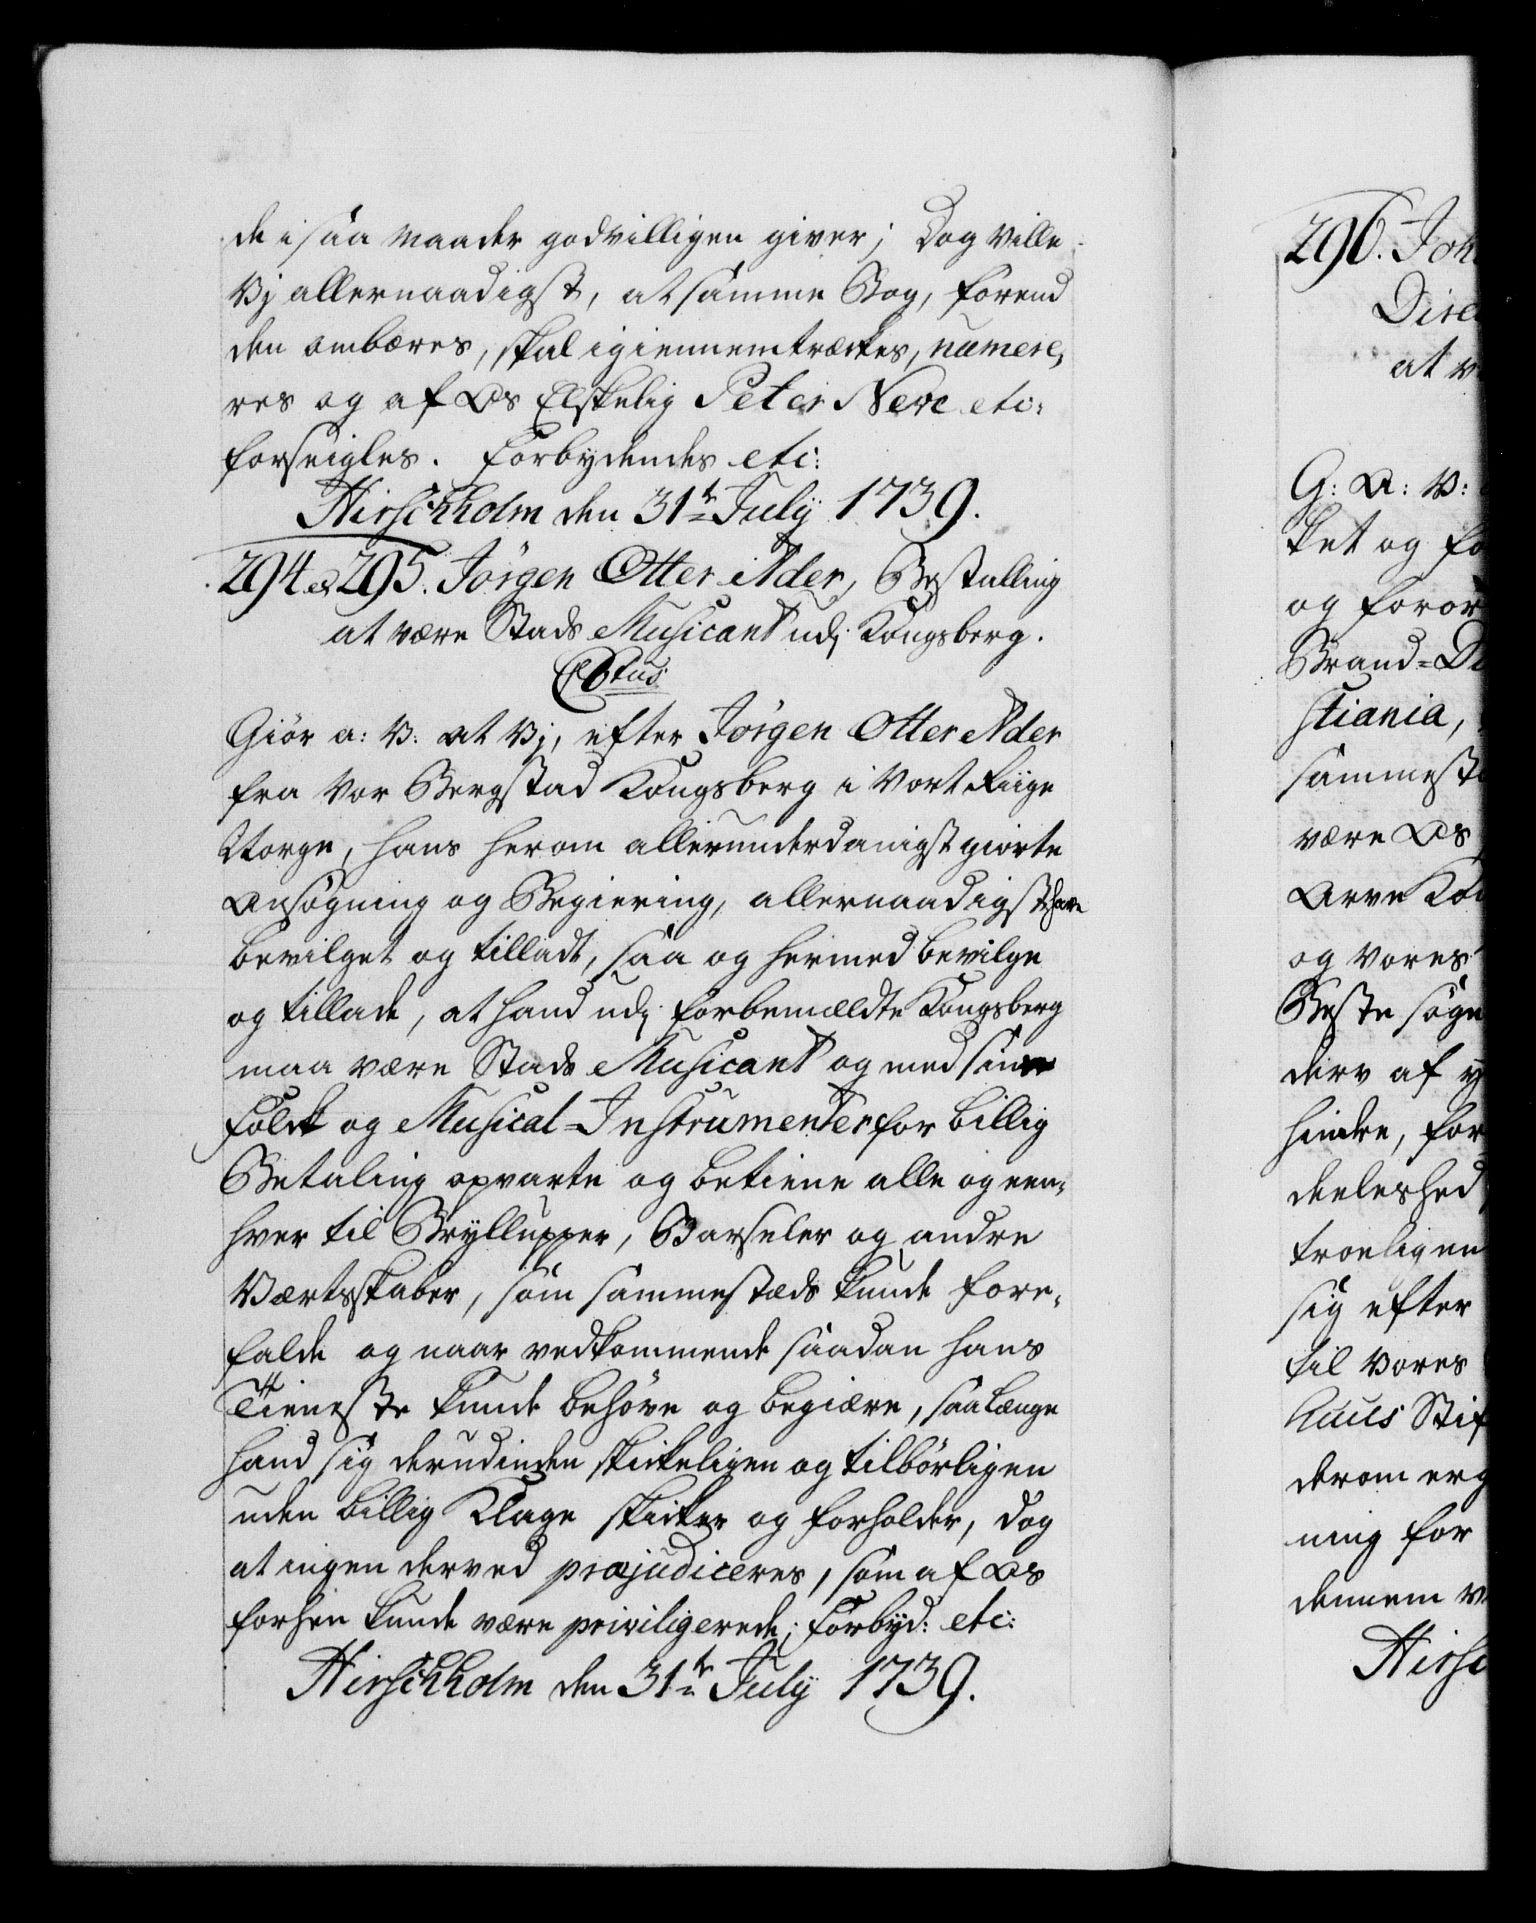 de i saa maader godvilligen giver; Dog ville
Vj allernaadigst, at samme Bog, forend
den ombæres, skal igiennemtrækkes, numere,
res og af Os Elskelig Peter Neve etc:
forseigles. Forbydendes etc:
Hirschholm den 31te July 1739.
294 & 295. Jørgen Otter Alder, Bestalling
at være Stads Musicant udj Kongsberg.
C6tus
Giör a: V: at Vj, efter Jørgen Otter Alder
fra Vor Bergstad Kongsberg i Vort Riige
Norge, hans herom allerunderdanigst giorte
Ansøgning og Begiering, allernaadigst have
bevilget og tilladt, saa og hermed bevilge
og tillade, at hand udj forbemældte Kongsberg
maa være Stads Musicant og med sine
Folck og Musical-Instrumenter for billig
Betaling opvarte og betiene alle og een,
hver til Bryllupper, Barseler og andre
Værtsskaber, som sammestæds kunde fore,
falde og naar vedkommende saadan hans
Tieneste kunde behöve og begiære, saalænge
hand sig derudinden skikkeligen og tilbörligen
uden billig Klage skikker og forholder, dog
at ingen derved præjudiceres, som af Os
forhen kunde være priviligerede; Forbyd: etc:
Hirschholm den 31te July 1739.
296. Joh
Dire
at v
G: A: V:
ket og fo
og foror
Brand-Di
stiania,
sammeste
være Os
Arve Kon
og vores
Beste søge
derv af y
hindre, for
deeleshed
troeligen
sig efter
til Vores
huus Stif
derom erg
ning for
dennem v
Hirsc